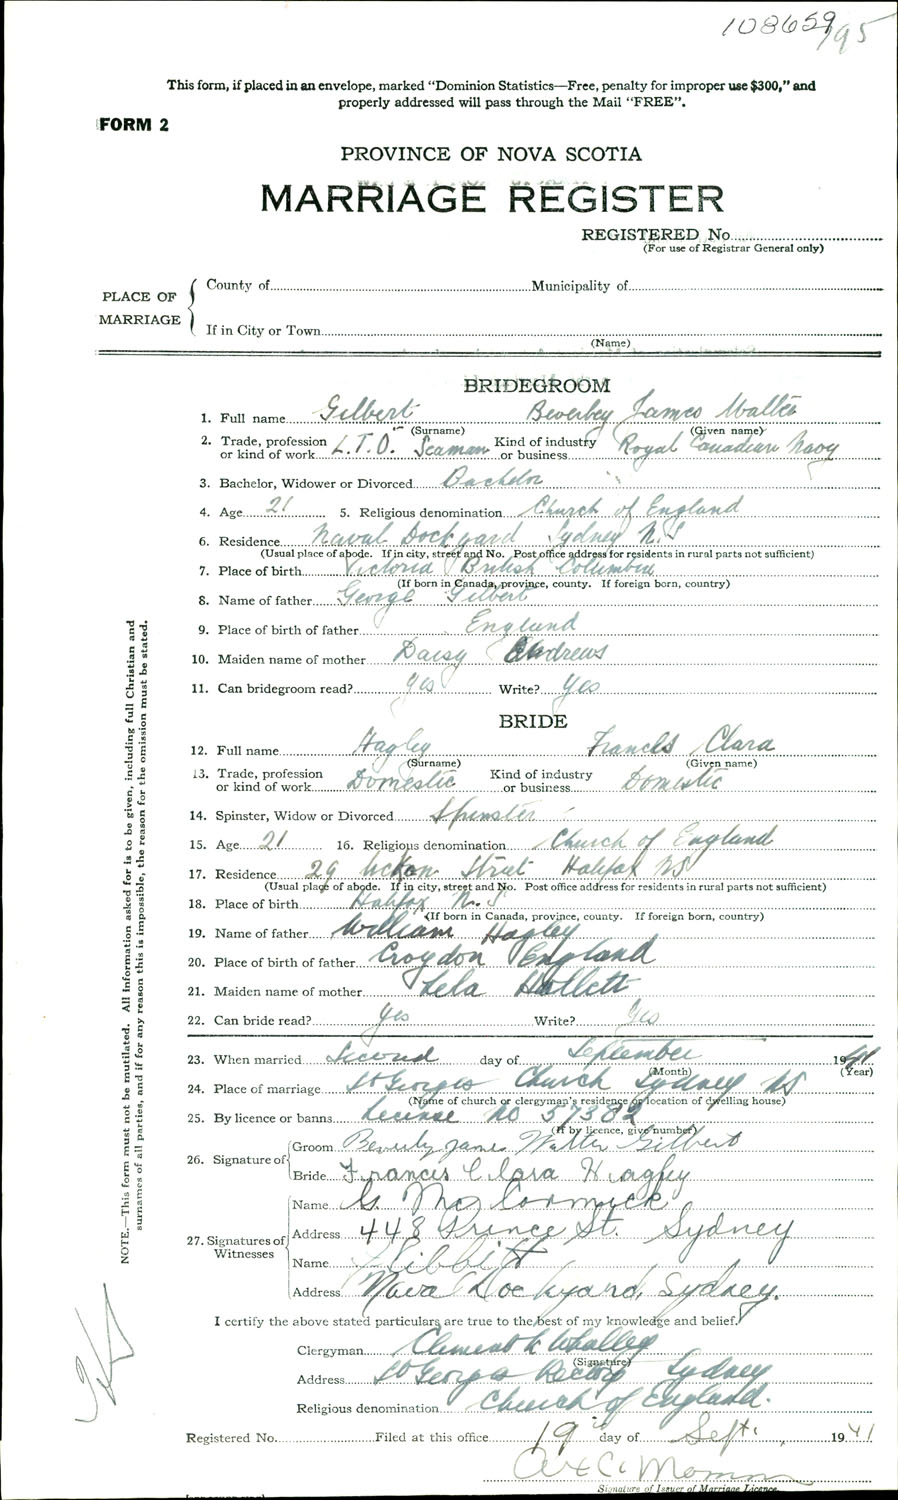 108659
195
This form, if placed in an envelope, marked "Dominion Statistics—Free, penalty for improper use $300," and
properly addressed will pass through the Mail "FREE".
FORM 2
PROVINCE OF NOVA SCOTIA
MARRIAGE REGISTER
REGISTERED No.
(For use of Registrar General only)
PLACE OF MARRIAGE
County of Municipality of
If in City or Town
(Name)
BRIDEGROOM
1. Full name Gilbert Beverley James Walter
(Surname) (Given name)
2. Trade, profession or kind of work L.T.O. Seaman Kind of industry or business Royal Canadian Navy
3. Bachelor, Widower or Divorced Bachelor
4. Age 21 5. Religious denomination Church of England
6. Residence Naval Dockyard Sydney N.S
(Usual place of abode. If in city, street and No. Post office address for residents in rural parts not sufficient)
7. Place of birth Victoria British Columbia
(If born in Canada, province, county. If foreign born, country)
8. Name of father George Gilbert
9. Place of birth of father England
10. Maiden name of mother Daisy Andrews
11. Can bridegroom read? Yes Write? Yes
BRIDE
12. Full name Hagley Francis Clara
(Surname) (Given name)
13. Trade, profession or kind of work Domestic Kind of industry or business Domestic
14. Spinster, Widow or Divorced Spinster
15. Age 21 16. Religious denomination Church of England
17. Residence 29 Street Halifax NS
(Usual place of abode. If in city, street and No. Post office address for residents in rural parts not sufficient)
18. Place of birth Halifax N.S
(If born in Canada, province, county. If foreign born, country)
19. Name of father William Hagley
20. Place of birth of father Croydon England
21. Maiden name of mother Lela Hallett
22. Can bride read? Yes Write? Yes
23. When married Second day of September 1941
(Month) (Year)
24. Place of marriage St Georges Church Sydney NS
(Name of church or clergyman's residence or location of dwelling house)
25. By licence or banns License no 57382
(If by licence, give number)
26. Signature of
Groom Beverly James Walter Gilbert
Bride Francis Clara Hagley
27. Signatures of Witnesses
Name G. McCormick
Address 448 Prince St. Sydney
Name
Address Naval Dockyard, Sydney.
I certify the above stated particulars are true to the best of my knowledge and belief.
Clergyman Clement Whalley
(Signature)
Address St Georges Rectory Sydney
Religious denomination Church of England.
Registered No. Filed at this office 19 day of Sept. 1941
Signature of Issuer of Marriage Licence.
NOTE.—This form must not be mutilated. All information asked for is to be given, including full Christian and
surnames of all parties, and if for any reason this is impossible, the reason for the omission must be stated.